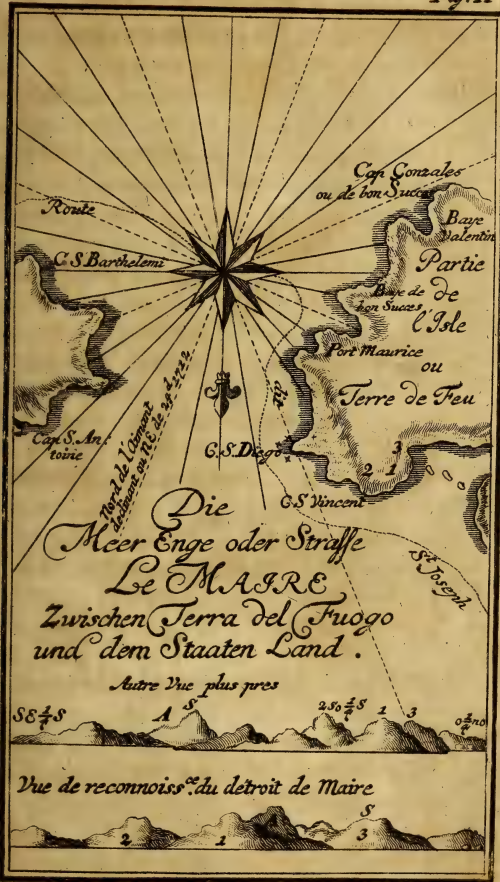 Cap Gonzales
ou de bon Succes
Route
Baye
Valentin
C.S. Barthelemi
Partie
de
Baye de
bon Succes
l'Isle
Port Maurice
ou
Terre de Feu
Cap S. An-
toine
Nord de l'Aimant
declinant au NE de 24 d 1712
dit
C.S. Diego
3
2 1
C S Vincent
St Joseph
Die
Meer Enge oder Strasse
Le MAIRE
Zwischen Terra del Fuogo
und dem Staaten Land.
Autre Vue plus pres
SE¼S A S 2SO¼S 1 3 O¼NO
Vue de reconnoiss.ce du détroit de Maire
2 1 S 3